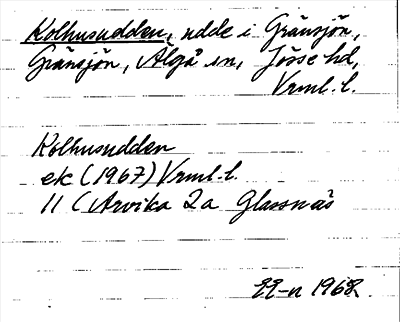 Kolhusudden, udde i Gränsjön,
Gränsjön, Älgå sn, Jösse hd,
Vrml. l.
Kolhusudden
ek (1967) Vrml. l.
11 C Arvika 2a Glassnäs
EE-n 1968.